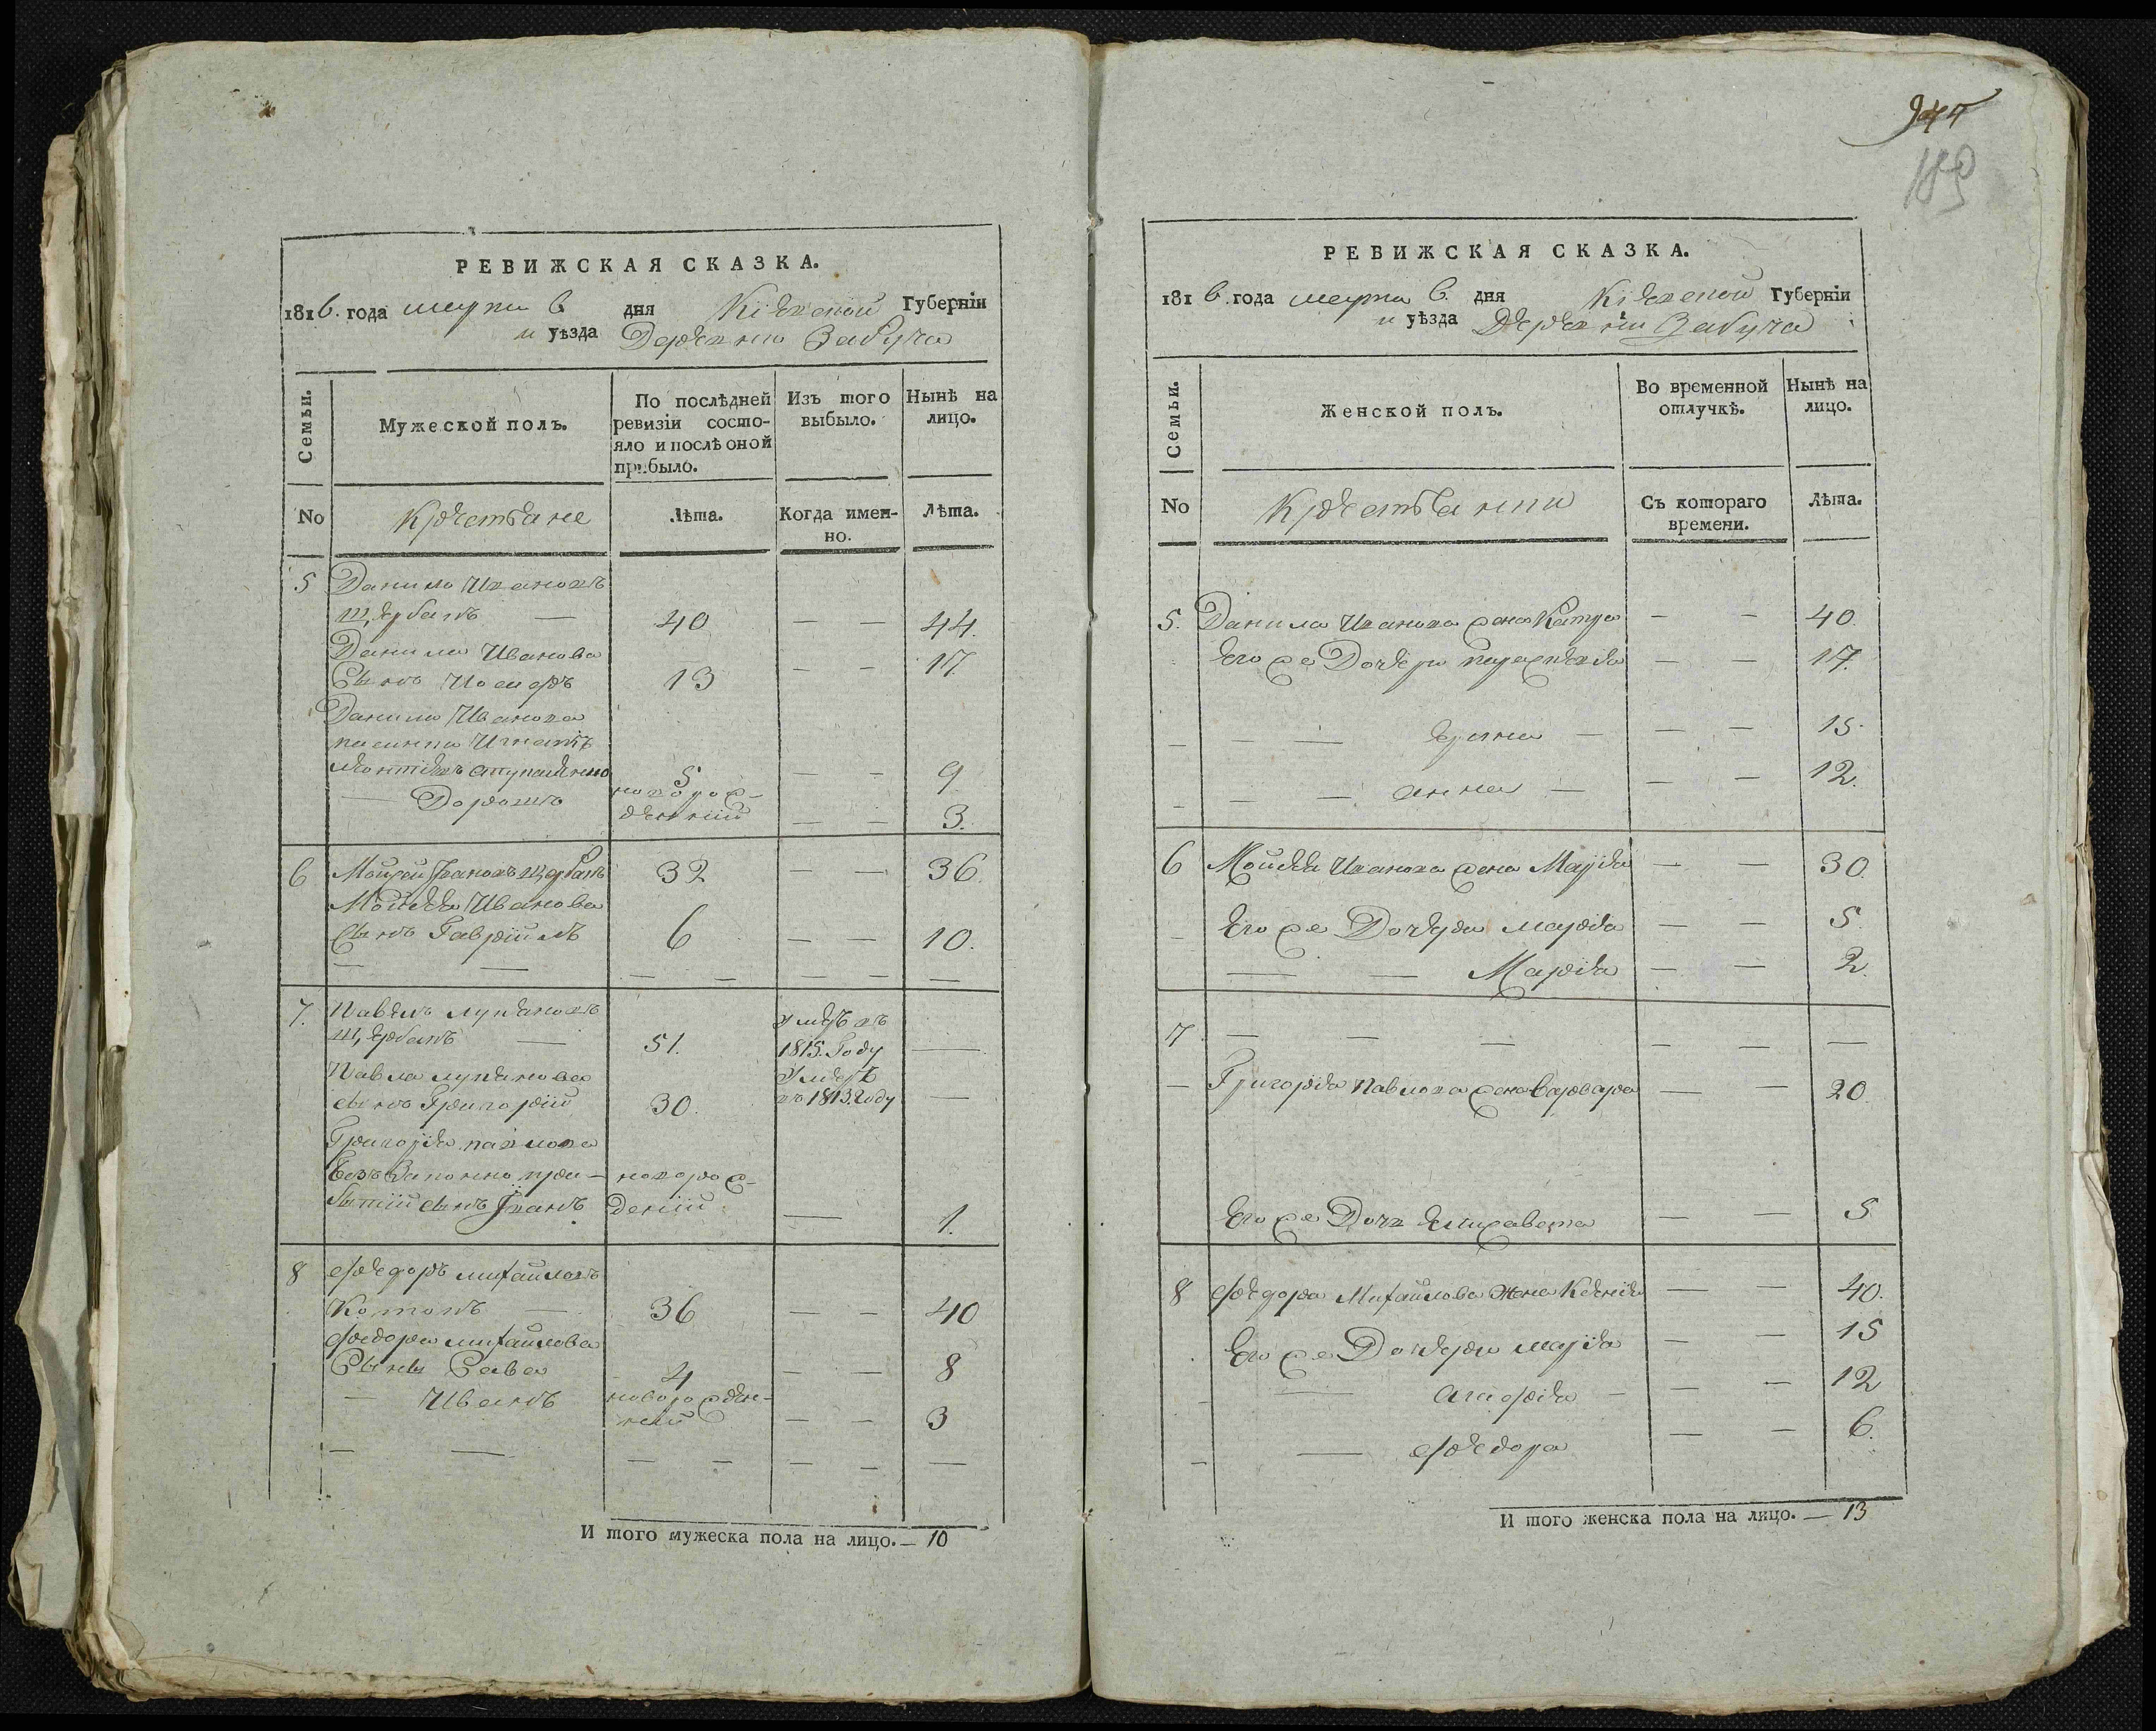 РЕВИЖСКАЯ СКАЗКА.
1816. года марта 6 дня Кіевской Губерніи
и уѣзда Деревни Забуча
Семьи.
Мужеской полъ.
По послѣдней ревизіи состо-
яло и послѣ оной
прибыло.
Изъ того
выбыло.
Нынѣ на
лицо.
No
Крестьяне
Лѣта.
Когда имен-
но.
Лѣта.
5 Данило Ивановъ
Щербакъ — 40 — — 44.
Данила Иванова
Сынъ Иосифъ 13 — — 17.
Данила Иванова
пасинки Игнатъ
5 — — 9
— Дорошъ новорож-
денний — — 3.
6 Мойсей Іванов Щербакъ 32 — — 36.
Мойсея Иванова
Сынъ Гавріилъ 6 — — 10.
— — — — — — —
7. Павелъ Лукяновъ
Щербакъ — 51. Умре въ
1815. Году —
Павла Лукянова
сынъ Григорій 30. Умре
въ 1813. Году —
Григорія Павлова
Безъ Законно при-
битій сынъ Іванъ новорож-
деній — 1.
8 Федоръ Михайловъ
Котокъ — 36 — — 40
Федора Михайлова
Сыны Сава 4 — — 8
— Иванъ новорожден-
ний — — 3
— — — — — — —
И того мужеска пола на лицо. — 10
944
189
РЕВИЖСКАЯ СКАЗКА.
1816. года марта 6. дня Кіевской Губерніи
и уѣзда Деревни Забуча
Семьи.
Женской полъ.
Во временной
отлучкѣ.
Нынѣ на
лицо.
No
Крестьянки
Съ котораго
времени.
Лѣта.
5. Данила Иванова жена Катря — — 40.
Его же Дочери Параскевія — — 17.
— — — — — — 15.
— — — Анна — — — 12.
6 Мойсея Иванова жена Марія — — 30.
— Его же Дочери Марія — — 5.
— — Марія — — 2.
7 — — — — — —
— Григорія Павлова жена Варвара — — 20.
Его же Дочь Елисавета — — 5
8 Федора Михайлова Жена Ксенія — — 40.
Его же Дочери Марія — — 15
— — Агафія — — — 12
— — Федора — — 6.
И того женска пола на лицо. — 13